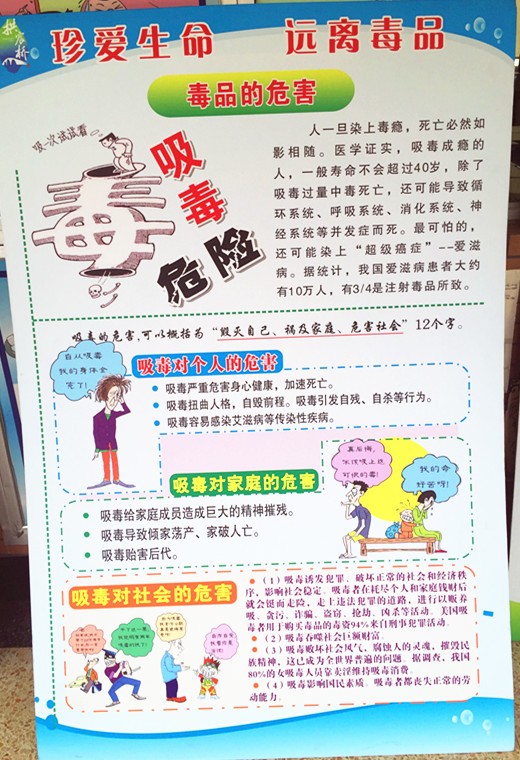 拱宸桥
珍爱生命 远离毒品
毒品的危害
吸一次试试看
毒
吸毒危险
人一旦染上毒瘾，死亡必然如
影相随。医学证实，吸毒成瘾的
人，一般寿命不会超过40岁，除了
吸毒过量中毒死亡，还可能导致循
环系统、呼吸系统、消化系统、神
经系统等并发症而死。最可怕的，
还可能染上“超级癌症”--爱滋
病。据统计，我国爱滋病患者大约
有10万人，有3/4是注射毒品所致。
吸毒的危害，可以概括为“毁灭自己、祸及家庭、危害社会”12个字。
自从吸毒
我的身体会
完了!
吸毒对个人的危害
吸毒严重危害身心健康，加速死亡。
吸毒扭曲人格，自毁前程。吸毒引发自残、自杀等行为。
吸毒容易感染艾滋病等传染性疾病。
真后悔，
不该吸上这
可恨的毒!
我的命
好苦呀!
吸毒对家庭的危害
吸毒给家庭成员造成巨大的精神摧残。
吸毒导致倾家荡产、家破人亡。
吸毒贻害后代。
吸毒对社会的危害
（1）吸毒诱发犯罪。破坏正常的社会和经济秩
序，影响社会稳定。吸毒者在耗尽个人和家庭钱财后
就会铤而走险，走上违法犯罪的道路，进行以贩养
吸、贪污、诈骗、盗窃、抢劫、凶杀等活动。美国吸
毒者用于购买毒品的毒资94%来自刑事犯罪活动。
（2）吸毒吞噬社会巨额财富。
（3）吸毒败坏社会风气，腐蚀人的灵魂，摧毁民
族精神，这已成为全世界普遍的问题。据调查，我国
80%的女吸毒人员靠卖淫维持吸毒消费。
（4）吸毒影响国民素质。吸毒者都丧失正常的劳
动能力。